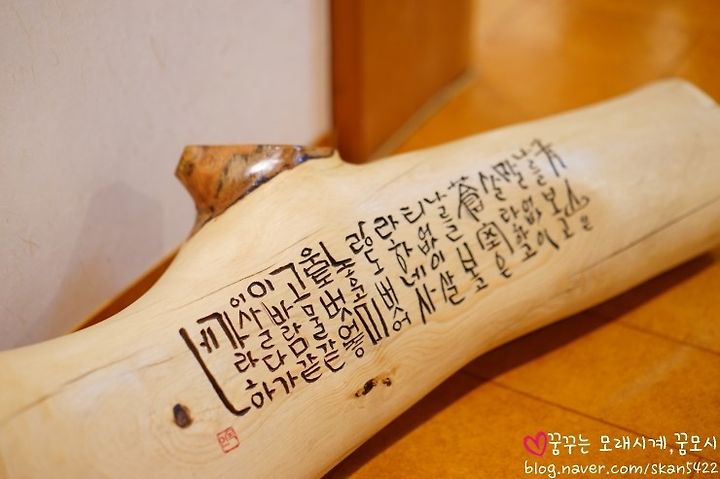 青山은
나를보고
말없이
살라하고
蒼空은
나를보고
티없이살
라하네사
랑도벗어
놓고미
움도벗어놓
고물같
이바람같
이살다가
가라하
네
꿈꾸는 모래시계,꿈모시
blog.naver.com/skan5422